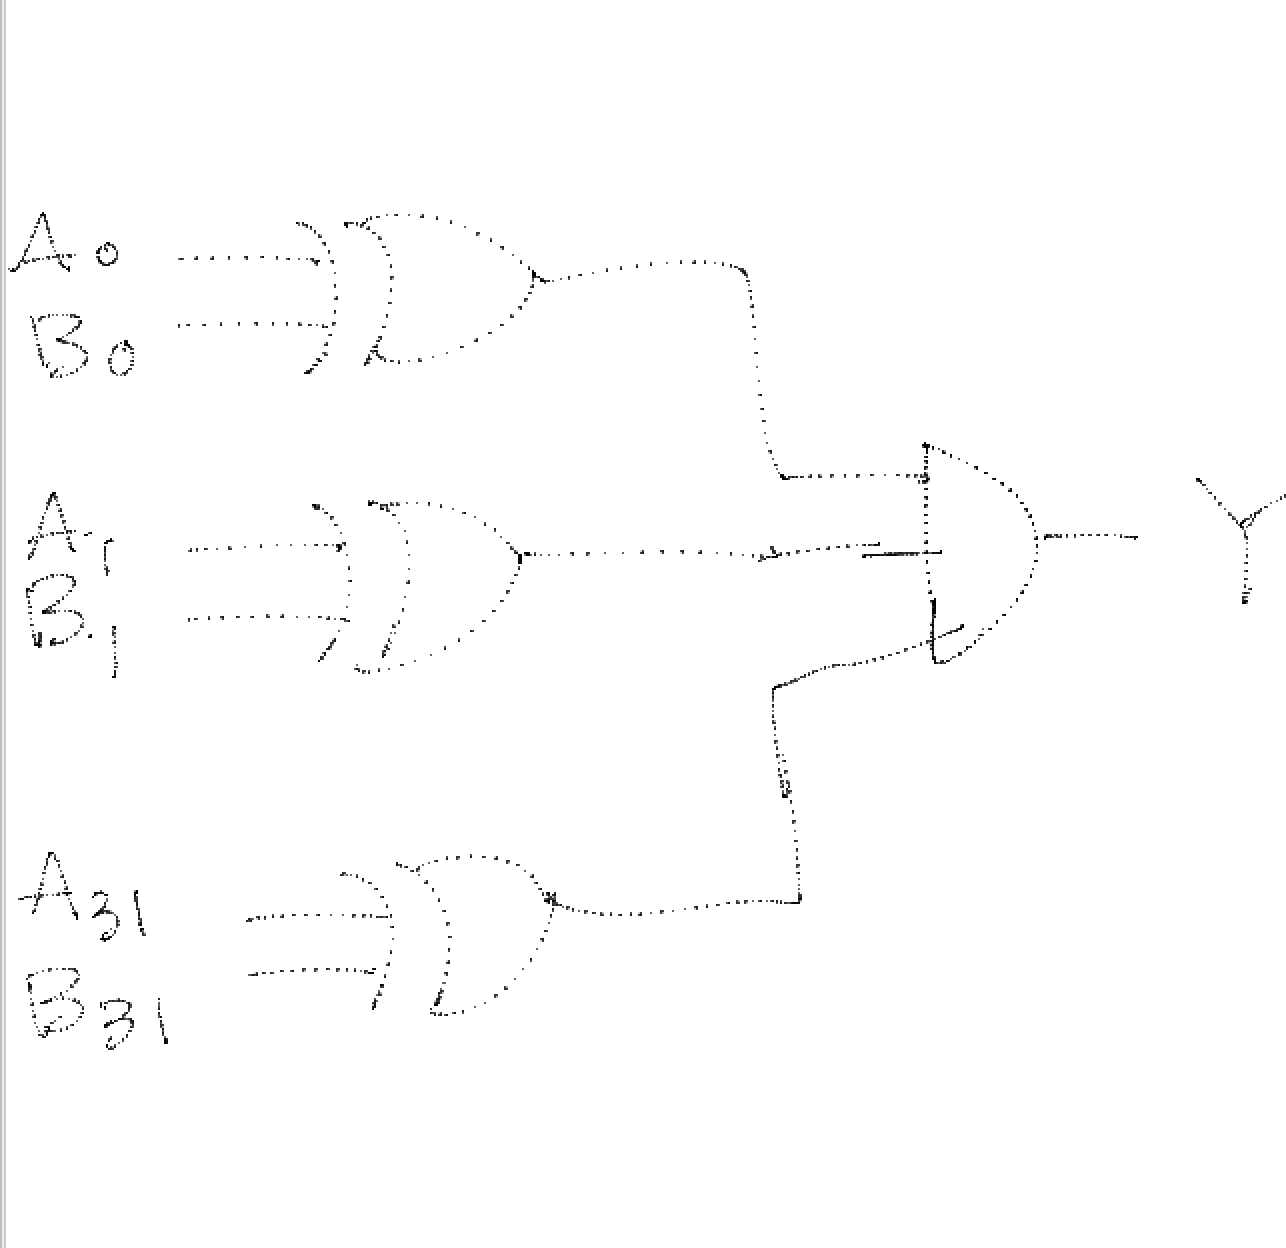 A0
B0
Y
A1
B1
A31
B31